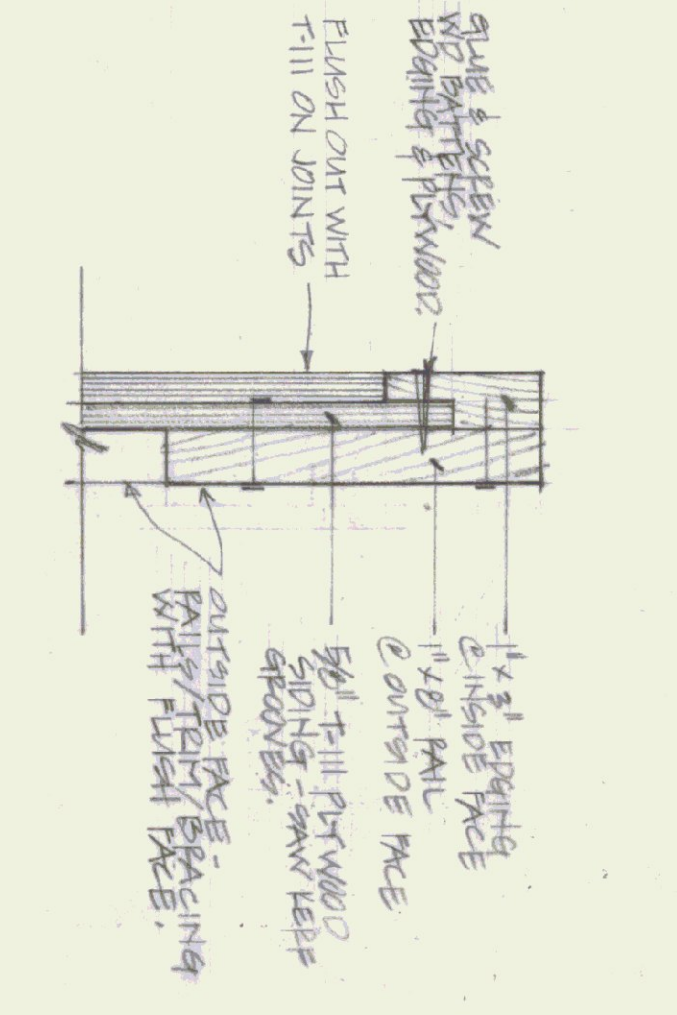 GLUE & SCREW
WD BATTENS,
EDGING & PLYWOOD.
FLUSH OUT WITH
T-111 ON JOINTS
1" X 3" EDGING
@ INSIDE FACE
1" X 8" RAIL
@ OUTSIDE FACE
5/8" T-111 PLYWOOD
SIDING - SAW KERF
GROOVES.
OUTSIDE FACE -
RAILS/TRIM/BRACING
WITH FLUSH FACE.